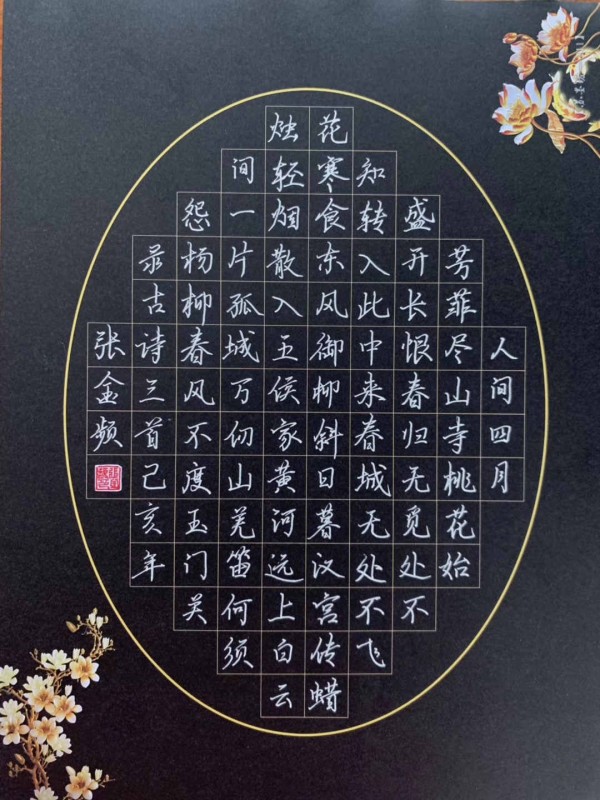 人间四月
芳菲尽山寺桃花始
盛开长恨春归无觅处不
知转入此中来春城无处不飞
花寒食东风御柳斜日暮汉宫传蜡
烛轻烟散入五侯家黄河远上白云
间一片孤城万仞山羌笛何须
怨杨柳春风不度玉门关
录古诗三首己亥年
张金频